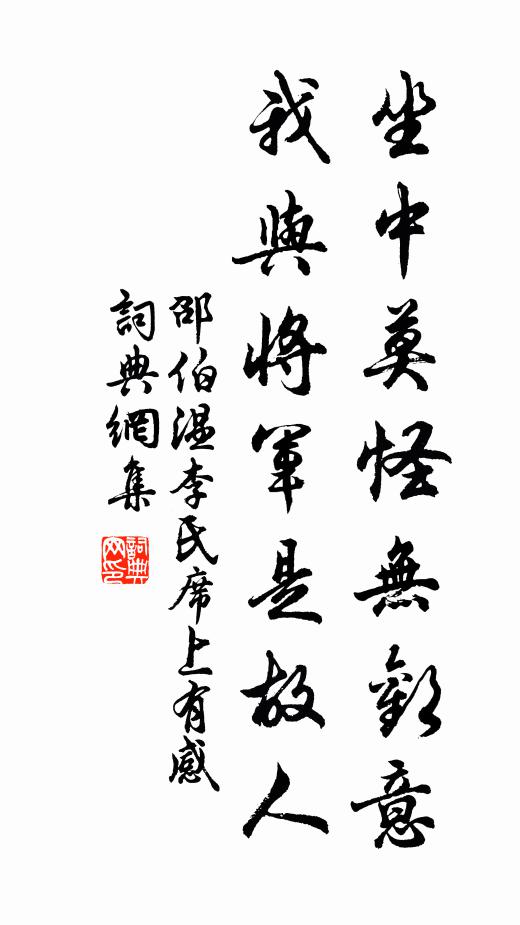 坐中莫怪無歡意
我與將軍是故人
邵伯溫李氏席上有感
詞典網集
詞典網印